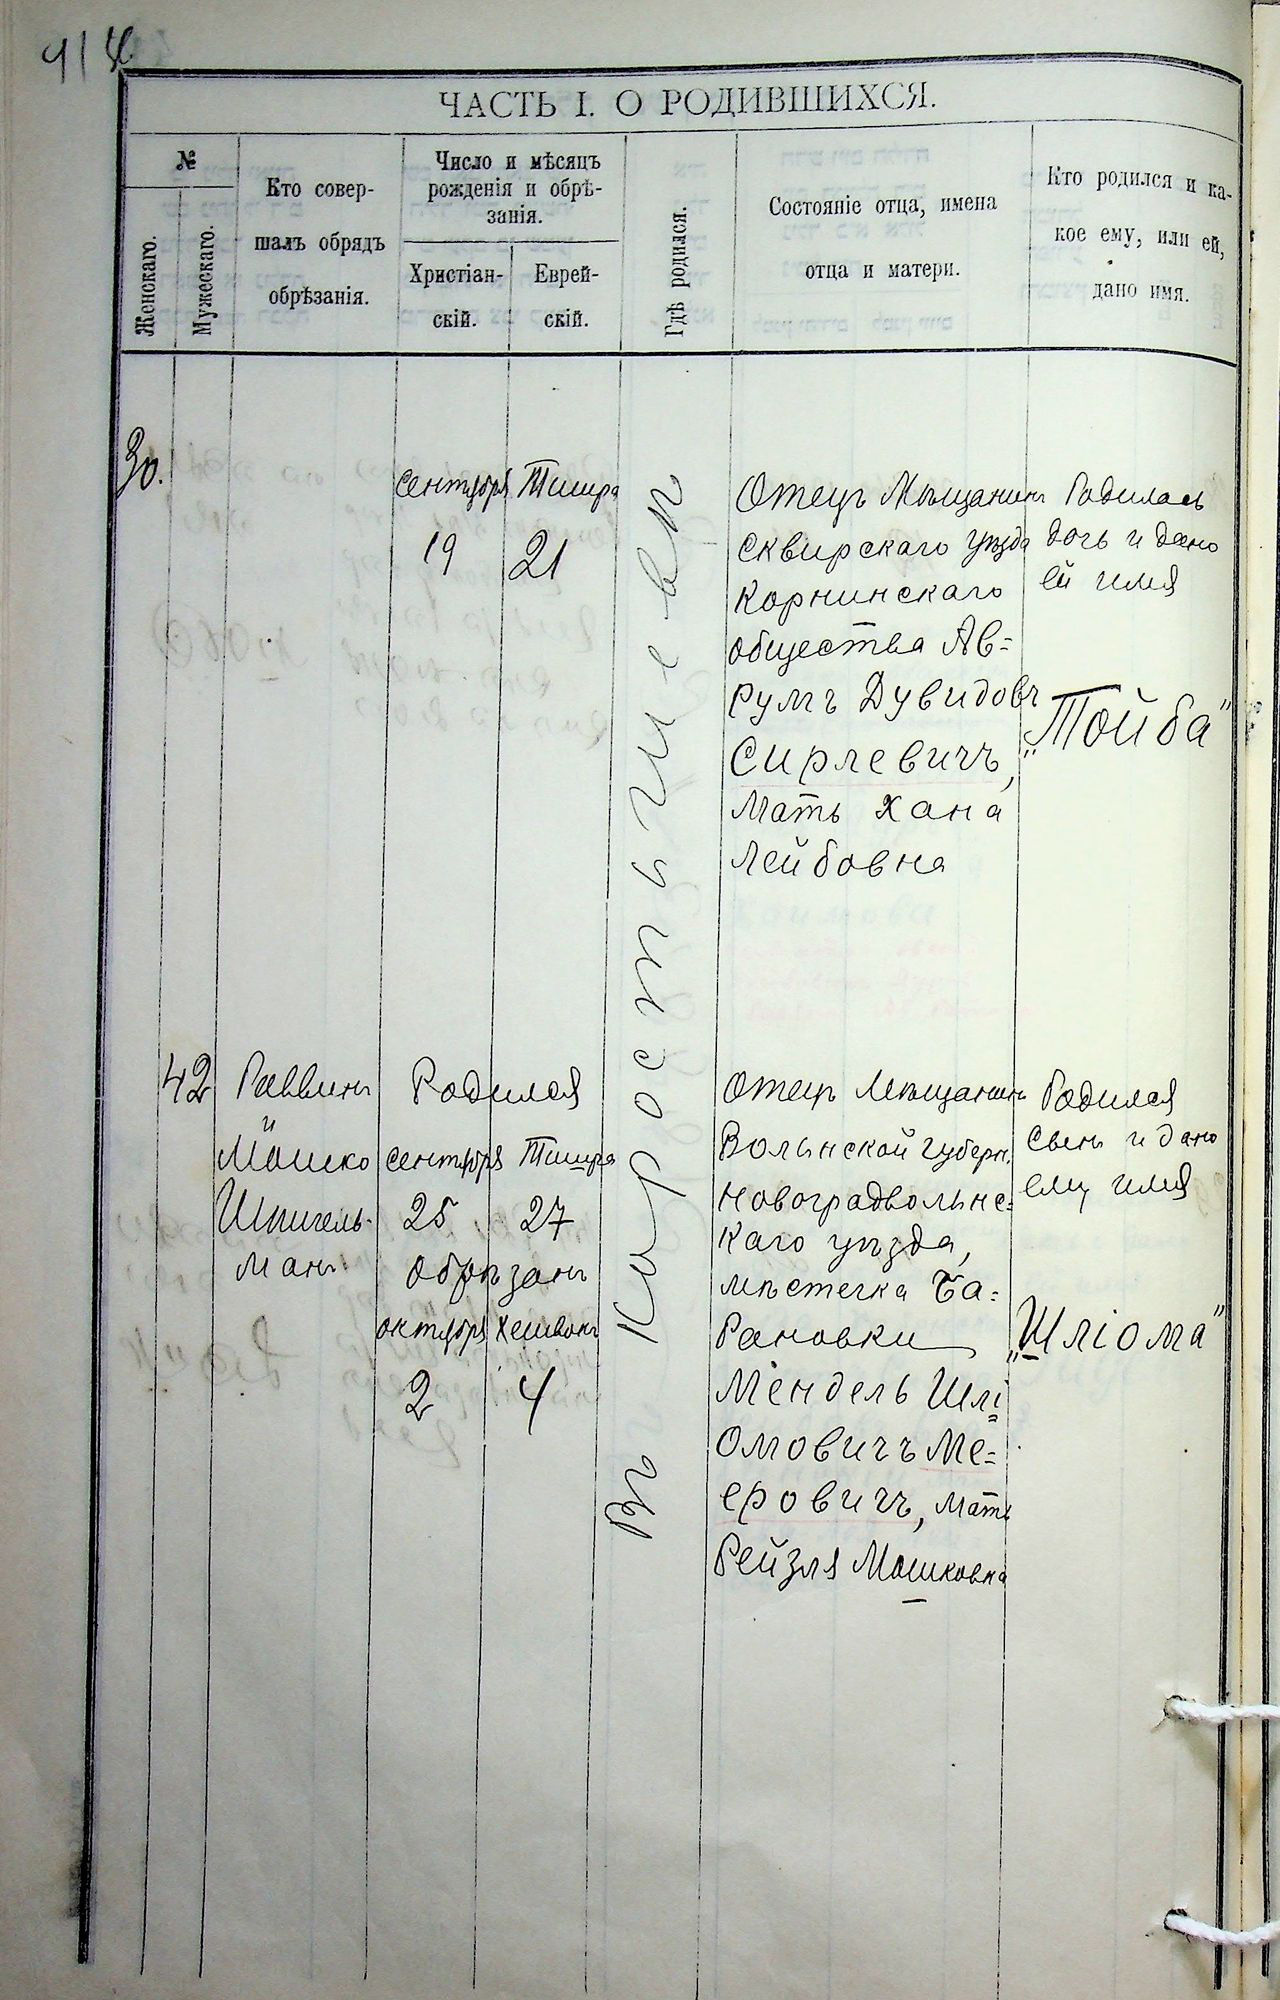 ЧАСТЬ I. О РОДИВШИХСЯ.
№
Женскаго.
Мужескаго.
Кто совер-
шалъ обрядъ
обрѣзанія.
Число и мѣсяцъ
рожденія и обрѣ-
занія.
Христіан-
скій.
Еврей-
скій.
Гдѣ родился.
Состояніе отца, имена
отца и матери.
Кто родился и ка-
кое ему, или ей,
дано имя.
30.
Сентября
19
Тишра
21
Въ Коростышевѣ
Отецъ Мѣщанинъ
Сквирскаго уѣзда
Корнинскаго
общества Ав=
румъ Дувидовъ
Сирлевичъ,
Мать Хана
Лейбовна
Родилась
дочь и дано
ей имя
„Тойба"
42
Раввинъ
Мошко
Шпигель-
манъ
Родился
Сентября Тишра
25 27
обрѣзанъ
октября Хешванъ
2 4
Отецъ Мѣщанинъ
Волынской губерн.
Новоградволынс=
каго уѣзда,
мѣстечка Ба=
рановки
Мендель Шлі
омовичъ Ме=
еровичъ, мать
Рейзля Мошковна
Родился
сынъ и дано
ему имя
„Шліома"